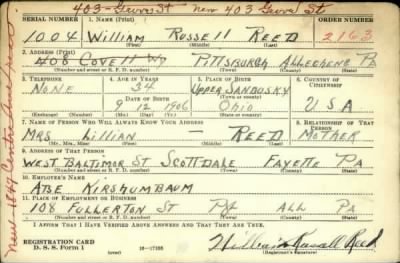 403 - Gevrs St - new 403 Gevrvl St
SERIAL NUMBER 1. NAME (Print) ORDER NUMBER
1004 William Russell REED 2163
2. ADDRESS (Print)
408 Covell Wy Pittsburgh Allegheny PA
(Number and street or R. F. D. number) (Town) (County) (State)
3. TELEPHONE 4. AGE IN YEARS 5. PLACE OF BIRTH 6. COUNTRY OF CITIZENSHIP
None 34 Upper Sandusky
DATE OF BIRTH
9 12 1906 Ohio USA
(Exchange) (Number) (Mo.) (Day) (Yr.) (State or country)
7. NAME OF PERSON WHO WILL ALWAYS KNOW YOUR ADDRESS 8. RELATIONSHIP OF THAT PERSON
Mrs Lillian - REED Mother
(Mr., Mrs., Miss) (First) (Middle) (Last)
9. ADDRESS OF THAT PERSON
West Baltimor St Scottdale Fayette PA
(Number and street or R. F. D. number) (Town) (County) (State)
10. EMPLOYER'S NAME
Abe Kirshumbaum
11. PLACE OF EMPLOYMENT OR BUSINESS
108 Fullerton St PA All PA
(Number and street or R. F. D. number) (Town) (County) (State)
I AFFIRM THAT I HAVE VERIFIED ABOVE ANSWERS AND THAT THEY ARE TRUE.
REGISTRATION CARD
D. S. S. Form 1 16-17105 William Russell Reed
(over) (Registrant's signature)
new - 1847 Centre Ave